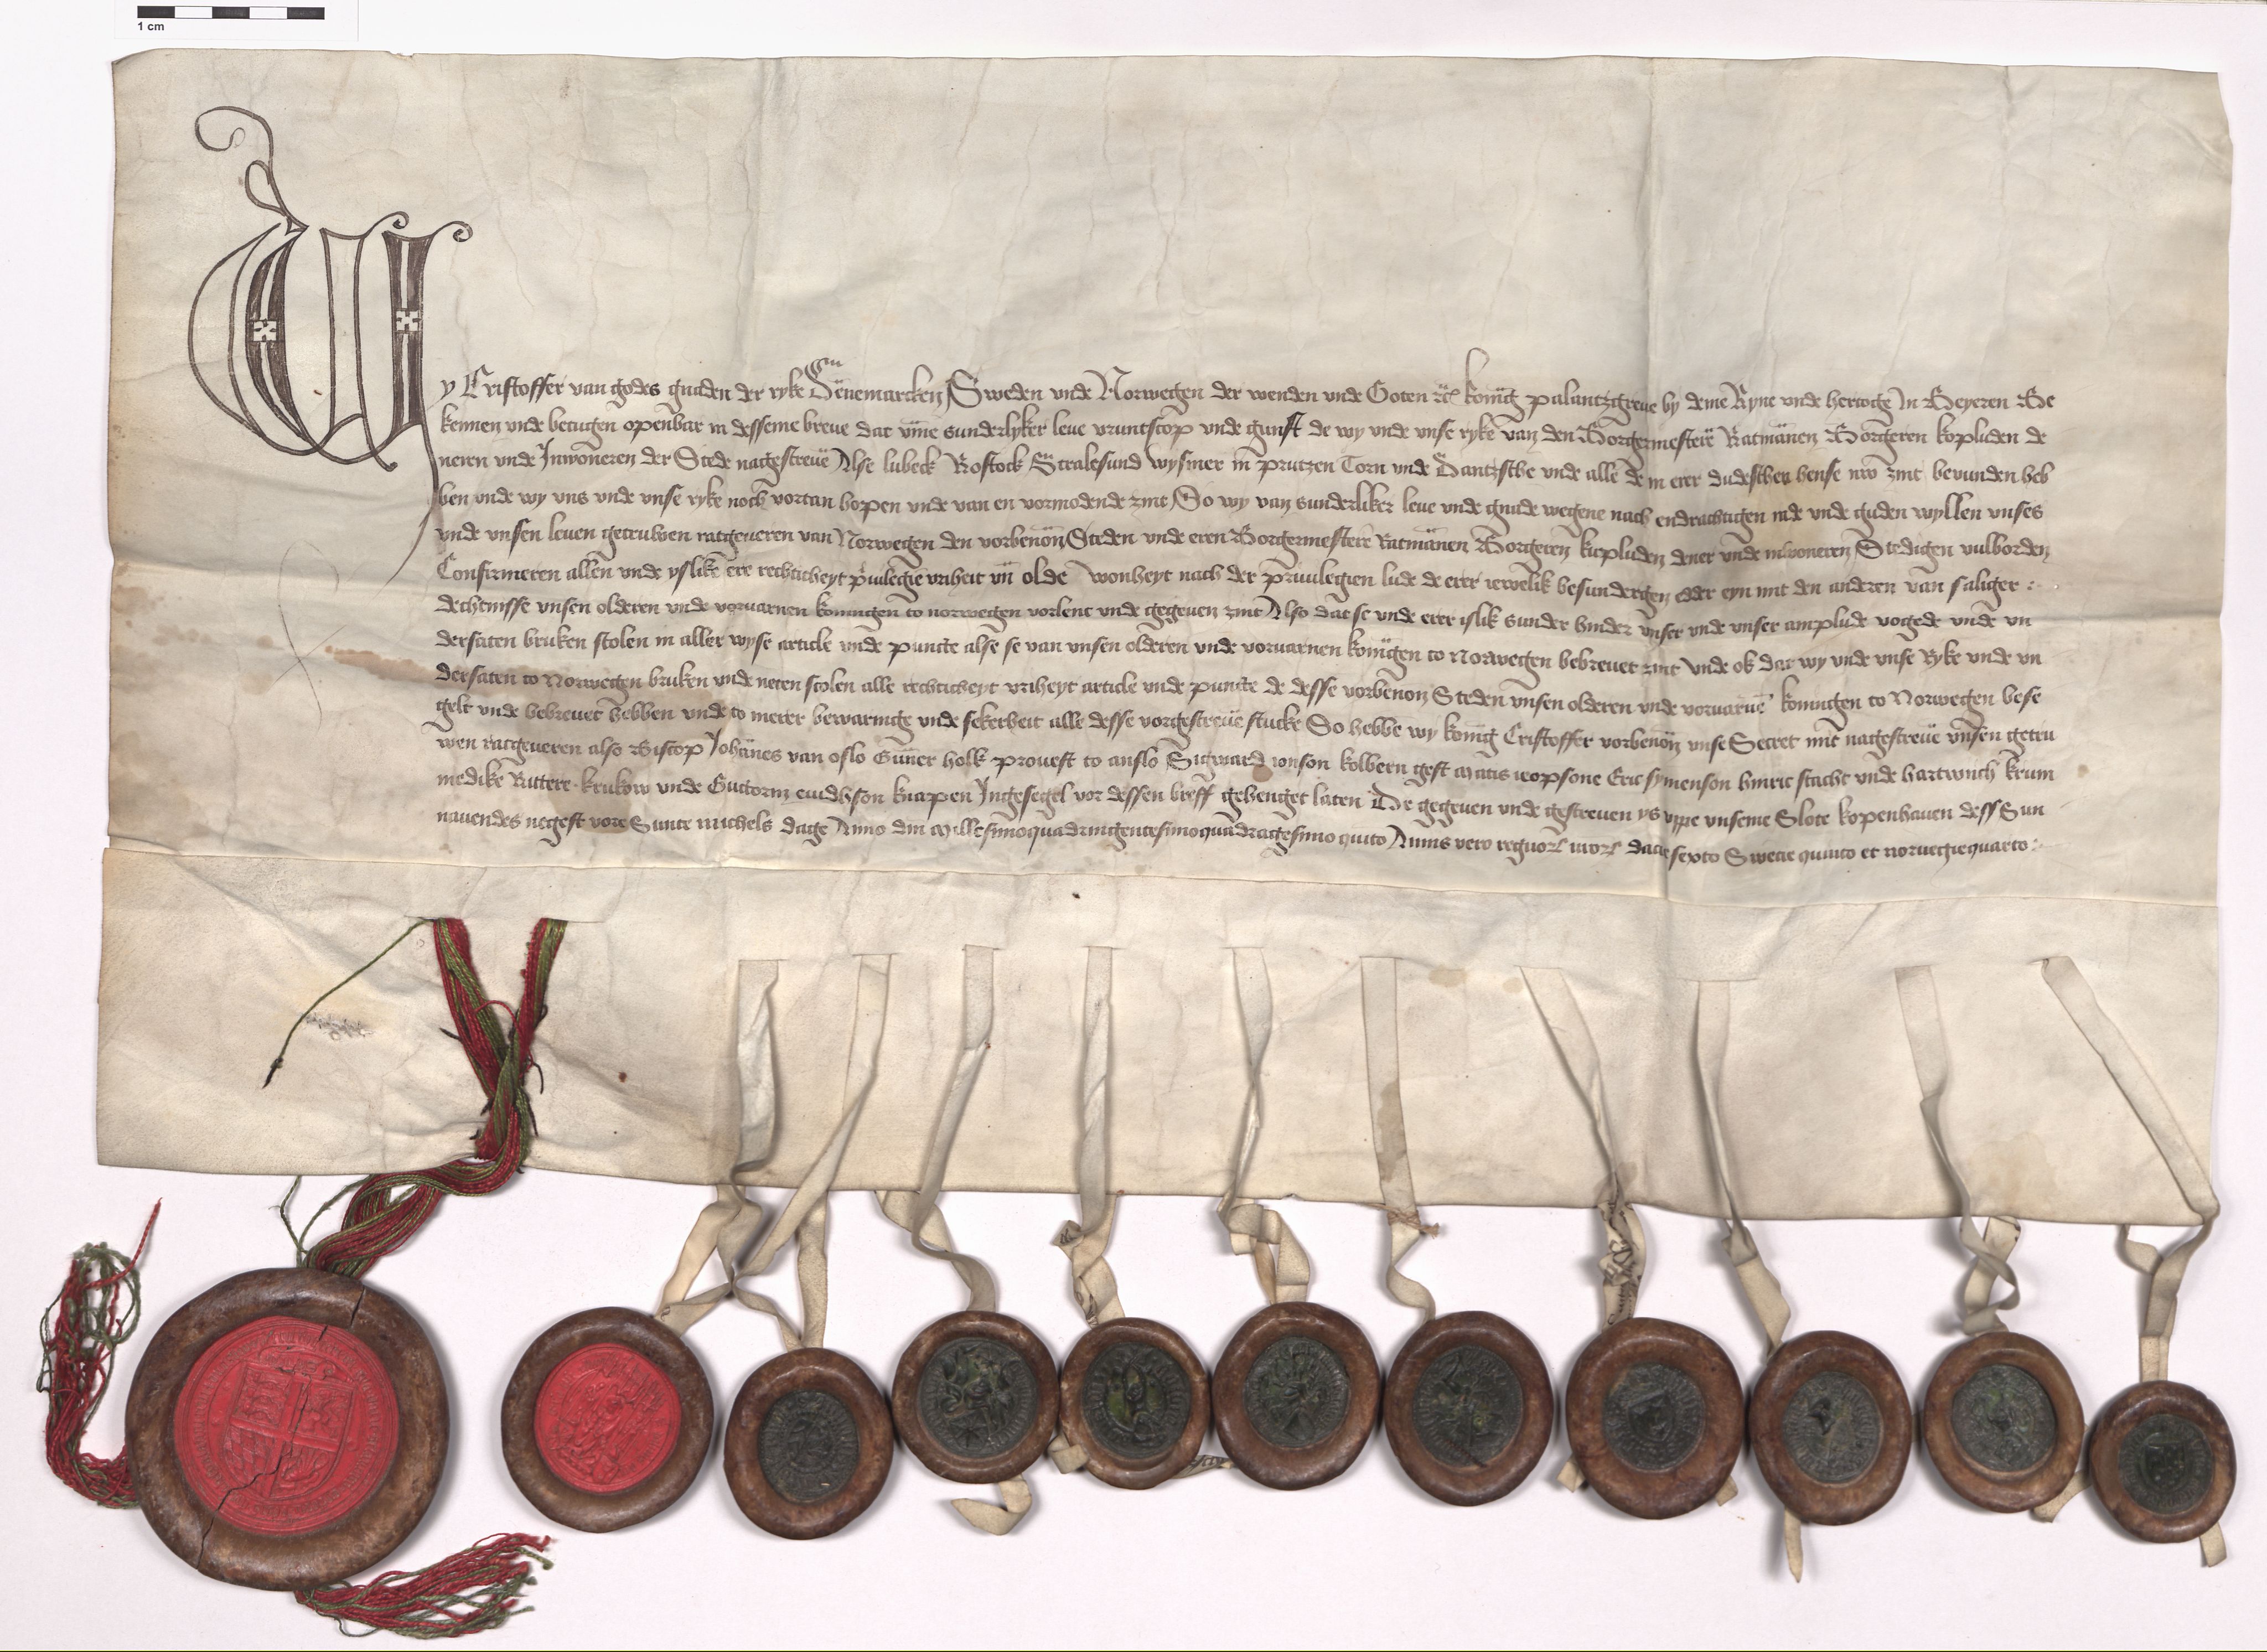 1 cm
Wy Cristoffer van godes gnaden der ryke Dēnemarcken Sweden vnde Norwegen der wenden vnde Goten konīg palantzgreue by deme Ryne vnde hertoge In Beyeren Be
kennen vnde betugen openbar in desseme breue dat vm̄e sunderlyker leue vruntscop vnde gunst de wy vnde vnse ryke van den Borgermesterē Ratmānen Borgeren kopluden de
neren vnde Inwoneren der Stede nagescreuē Alse lubeck Rostock Stralesund wysmer in prutzen Torn vnde Dantzsche vnde alle de in erer dudeschen hense nw zint bevunden heb
ben vnde wy vns vnde vnse ryke noch vortan hopen vnde van en vormodende zint So wy van sunderliker leue vnde gnade wegene nach endrachtigen rade vnde guden wyllen vnses
vnde vnsen leuen getruwen ratgeueren van Norwegen den vorbenōn Steden vnde eren Borgermestere Ratmānen Borgeren kopluden dener vnde inwoneren Stedigen vulborden
Confirmeren allen vnde yslikē ere rechticheyt priuilegie vriheit vn̄ olde wonheyt nach der priuilegien lude de erer iewelik besundergen oder eyn mit den anderen van saliger
dechtnisse vnsen olderen vnde voruarnen konnigen to norwegen vorlent vnde gegeuen zint Also dat se vnde erer islik sunder hinder vnser vnde vnser amplude vogede vnde vn
dersaten bruken scolen in aller wyse article vnde puncte alse se van vnsen olderen vnde voruarnen konīgen to Norwegen bebreuet zint vnde ok dat wy vnde vnse Ryke vnde vn
dersaten to Norwegen bruken vnde neten scolen alle rechticheyt vriheyt article vnde puncte de desse vorbenōn Steden vnsen olderen vnde voruarnē konnigen to Norwegen bese
gelt vnde bebreuet hebben vnde to merer bewaringe vnde sekerheit alle desse vorgescreuē stucke So hebbe wy konīg Cristoffer vorbenōn vnse Secret mit nagescreuē vnsen getru
wen ratgeueren also Biscop Johānes van oslo Gūner holk prouest to anslo Sigward ionson kolbern gest Matis ieopsone Eric symenson hinric stacht vnde hartwich krum
medike Ruttere krukow vnde Guttorm euidhson knapen Ingesegel vor dessen breff gehenget laten De gegeuen vnde gescreuen ys vppe vnseme Slote kopenhauen dess Sun
nauendes negest vore Sunte michels dage Anno dni Millesimoquadringentesimoquadragesimo quīto Annis vero regnor nror dacie sexto Swecie quinto et norwegie quarto